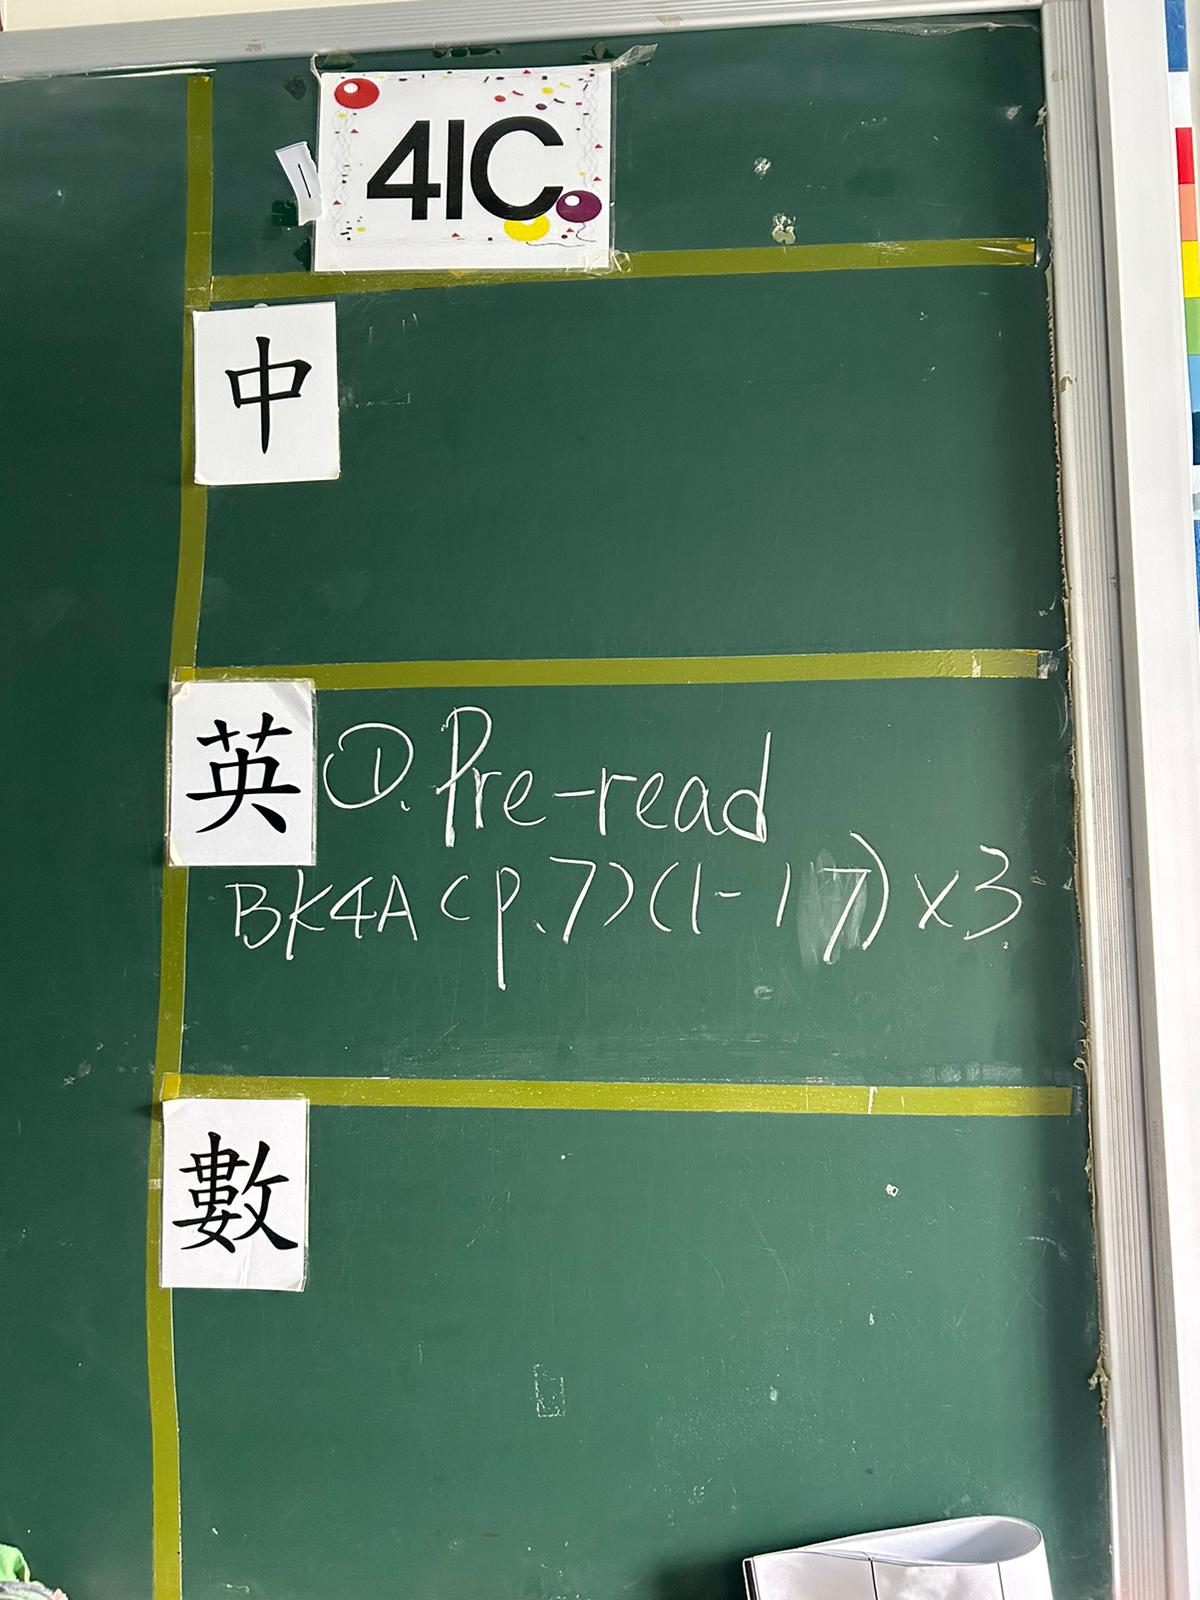 41C
中
英
①. Pre-read
BK4A (p.7) (1-17) x3
數